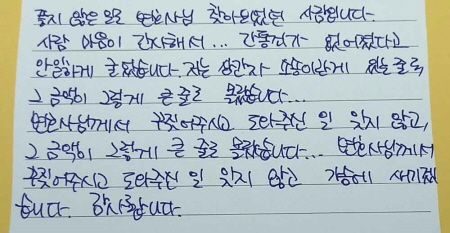 좋지 않은 일로 변호사님 찾아뵈었던 사람입니다.
사람 마음이 간사해서... 간통죄가 없어졌다고
안일하게 굴었습니다. 저는 상간자 소송이란게 있는 줄도,
그 금액이 그렇게 큰 줄도 몰랐습니다...
변호사님께서 꾸짖어주시고 도와주신 일 잊지 않고,
그 금액이 그렇게 큰 줄도 몰랐습니다... 변호사님께서
꾸짖어주시고 도와주신 일 잊지 않고 가슴에 새기겠
습니다. 감사합니다.